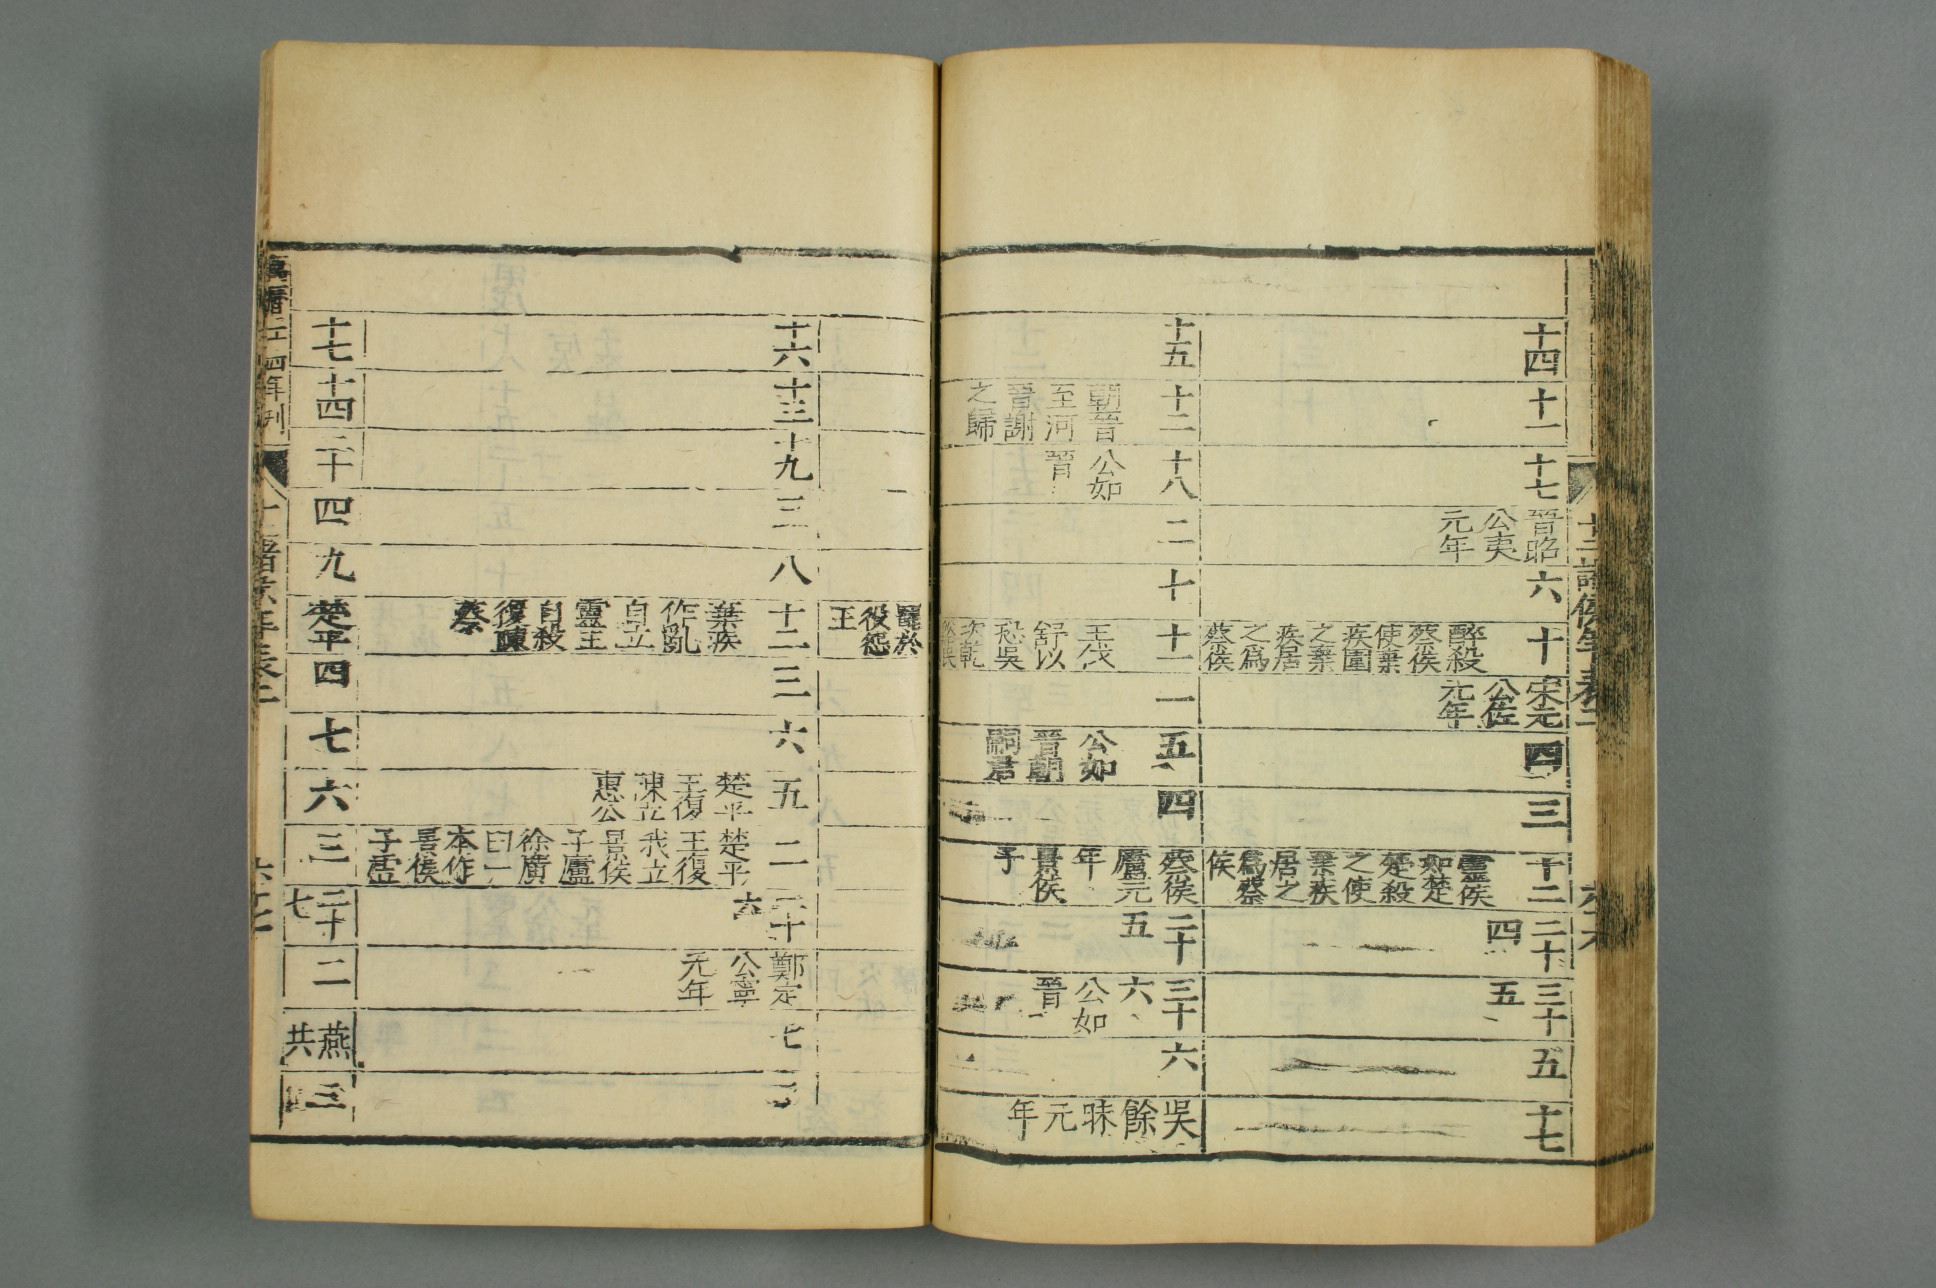 十二諸侯年表二
十四
十一
十七
晉昭
公夷
元年
六
十
醉殺
蔡侯
使棄
疾圍
之棄
疾居
之爲
蔡侯
宋元
公佐
元年
四
三
十二
靈侯
如楚
楚殺
之使
棄疾
居之
爲蔡
侯
二十
四
三十
五
五
十七
十五
十二
朝晉
至河
晉謝
之歸
十八
公如
晉
二
十
十一
王伐
舒以
恐吳
次乾
一
五
公如
晉朝
嗣君
四
蔡侯
廬元
年
景侯
子
二十
五
三十
六
公如
晉
六
吳
餘
昧
元
年
罷於
役怨
王
十六
十三
十九
三
八
十二
棄疾
作亂
自立
靈王
自殺
復陳
蔡
三
六
五
楚平
王復
陳立
惠公
二
楚平
王復
我立
景侯
子廬
徐廣
曰一
本作
景侯
子虛
二十
六
鄭定
公寧
元年
七
三
十七
十四
二十
四
九
楚平
四
七
六
三
二十
七
二
燕
共
三
萬曆二十四年刊